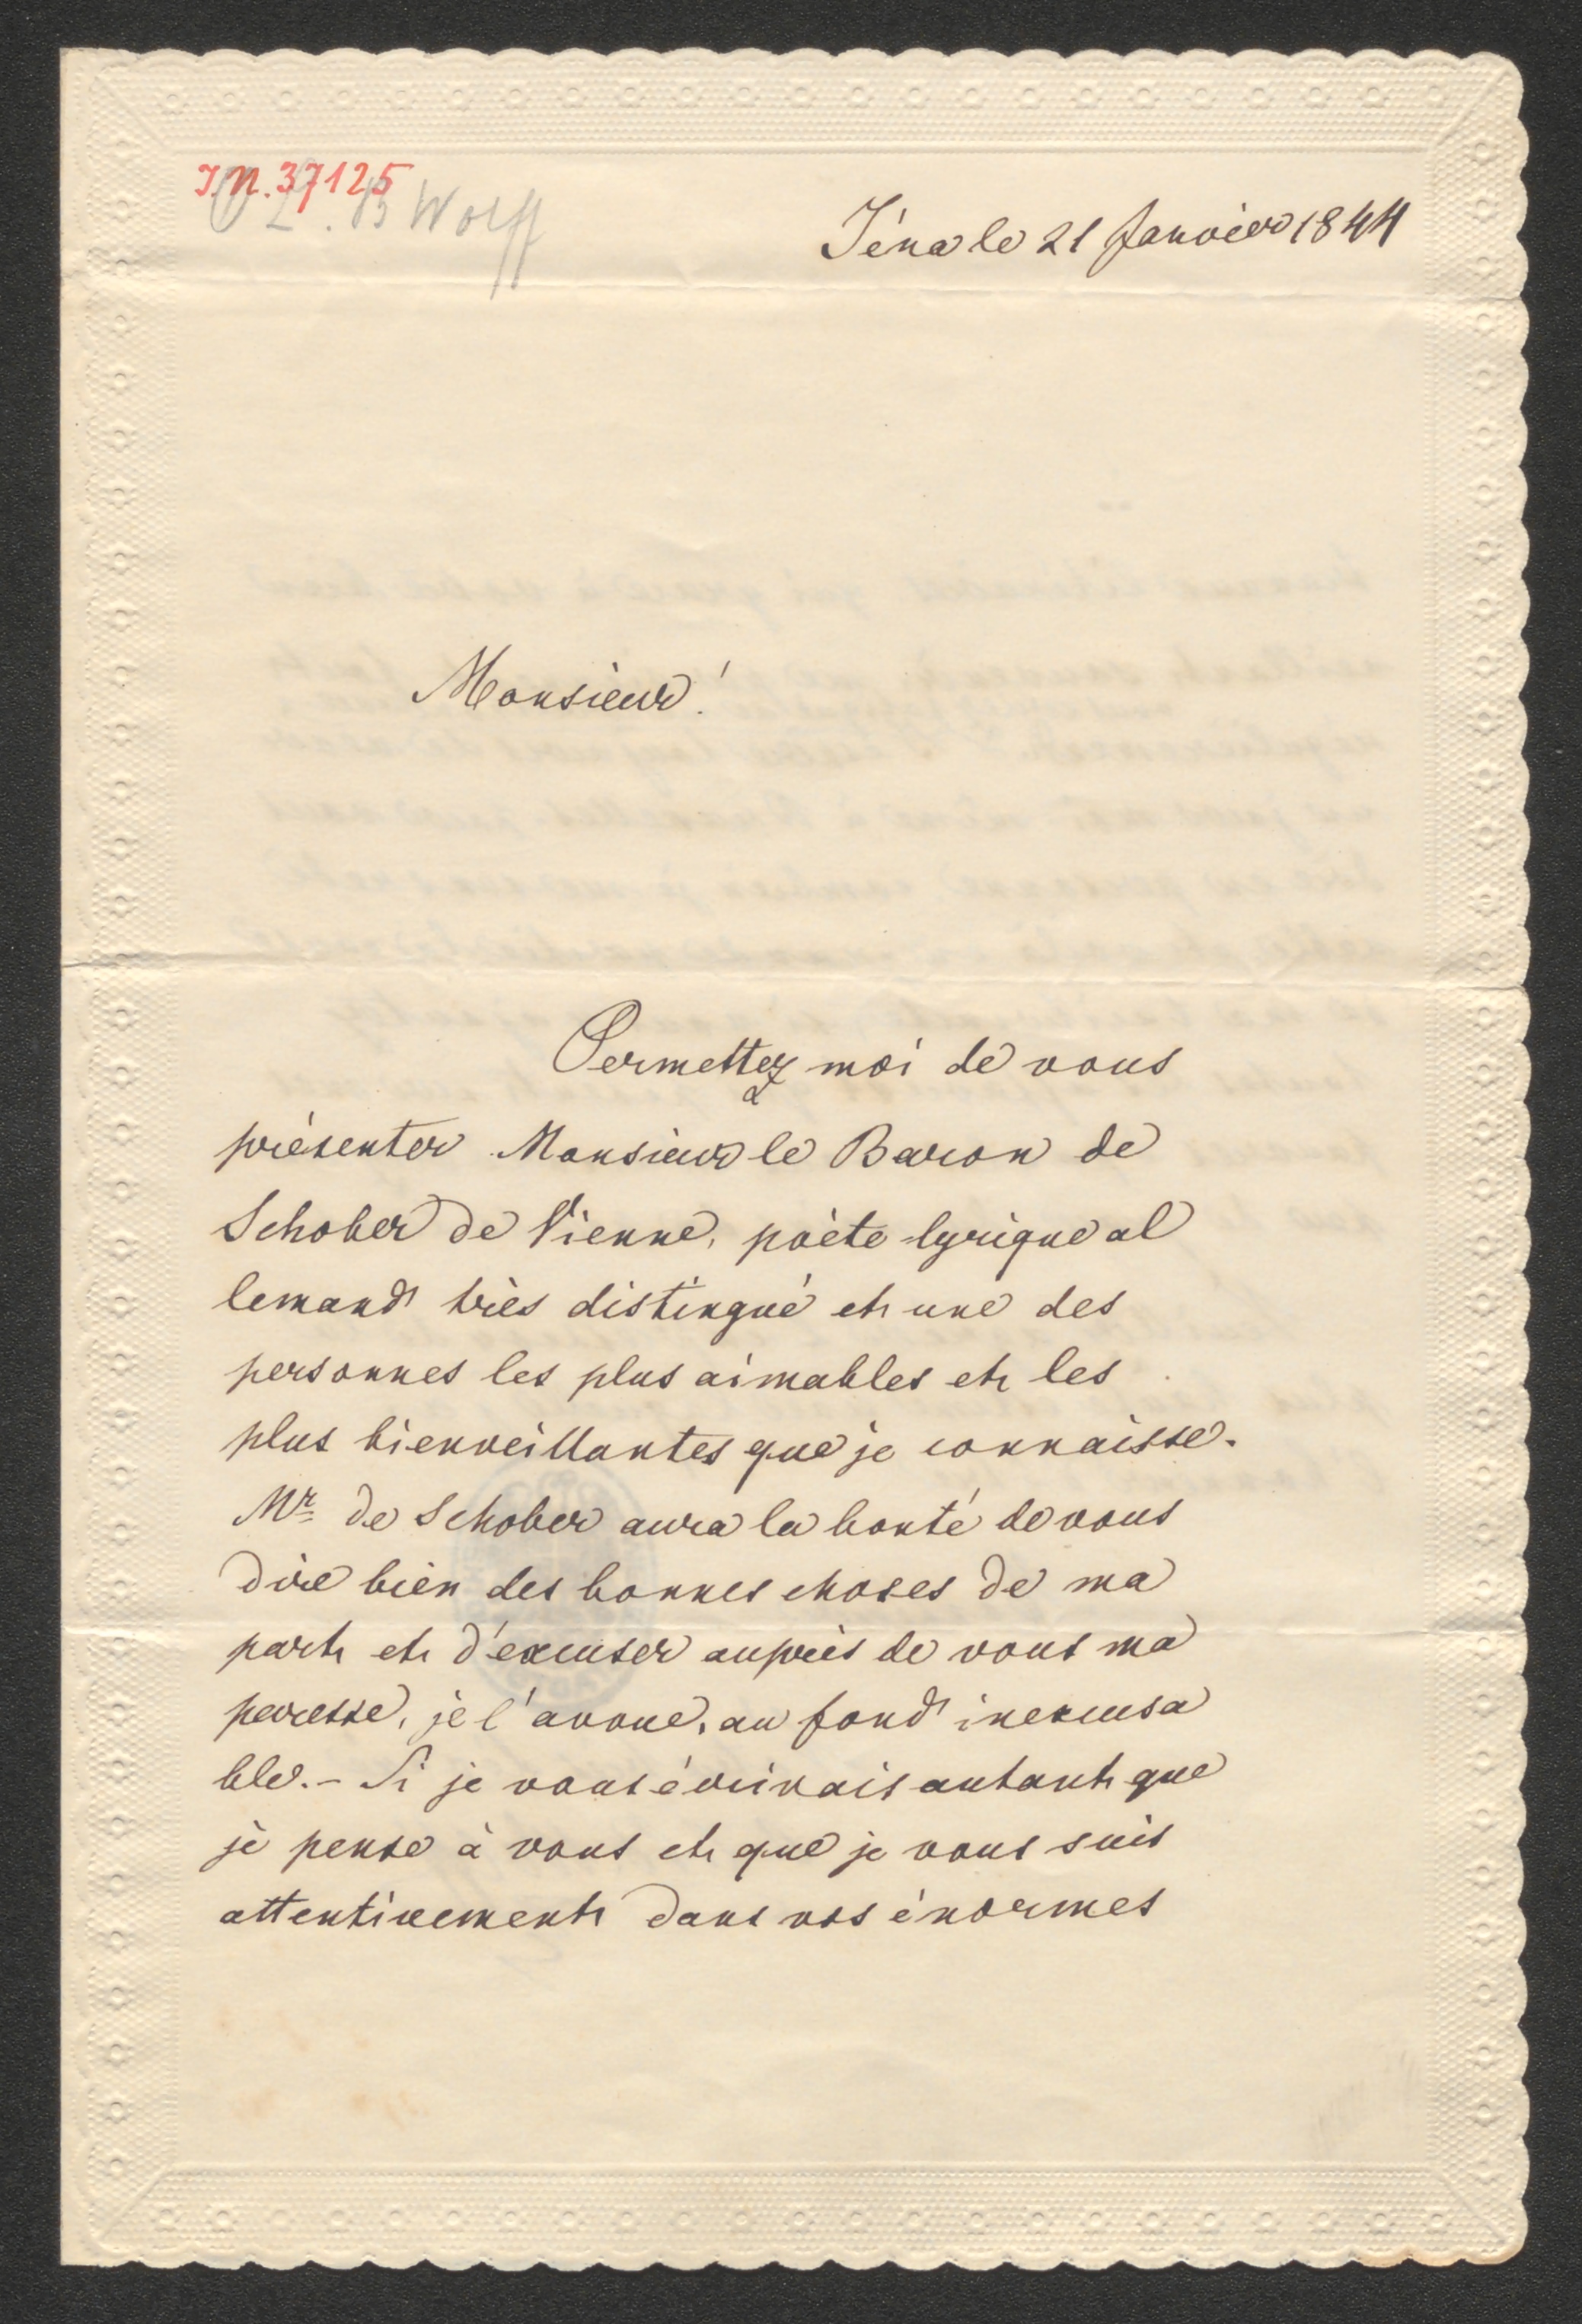 I.N. 37125
O L. B Wolff
Iéna le 21 Janvier 1844
Monsieur!
Permettez moi de vous
présenter Monsieur le Baron de
Schober de Vienne, poète lyrique al
lemand très distingué et une des
personnes les plus aimables et les
plus bienveillantes que je connaisse.
Mr de Schober aura la bonté de vous
dire bien des bonnes choses de ma
part et d'excuser auprès de vous ma
paresse, je l'avoue, au fond inexcusa
ble. - Si je vous écrivais autant que
je pense à vous et que je vous suis
attentivement dans vos énormes